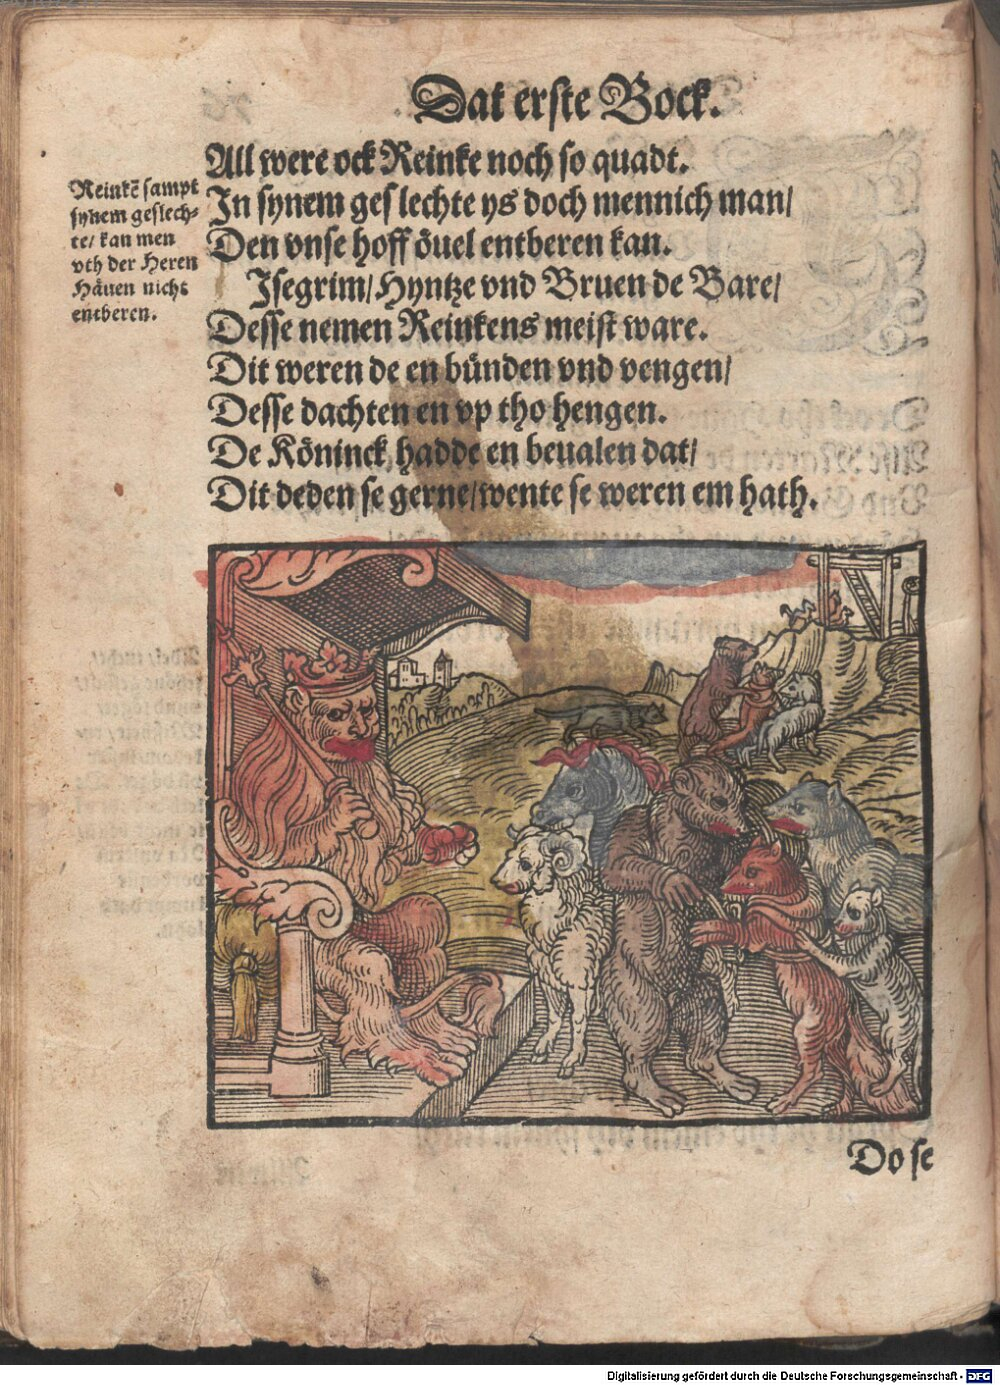 Dat erste Bock.
All were ock Reinke noch so quadt.
In synem geslechte ys doch mennich man/
Den vnse hoff öuel entberen kan.
Isegrim/ Hyntze vnd Bruen de Bare/
Desse nemen Reinkens meist ware.
Dit weren de en bünden vnd vengen/
Desse dachten en vp tho hengen.
De Köninck hadde en beualen dat/
Dit deden se gerne/ wente se weren em hath.
Reinkē sampt
synem geslech-
te/ kan men
vth der Heren
Häuen nicht
entberen.
Do se
Digitalisierung gefördert durch die Deutsche Forschungsgemeinschaft - DFG